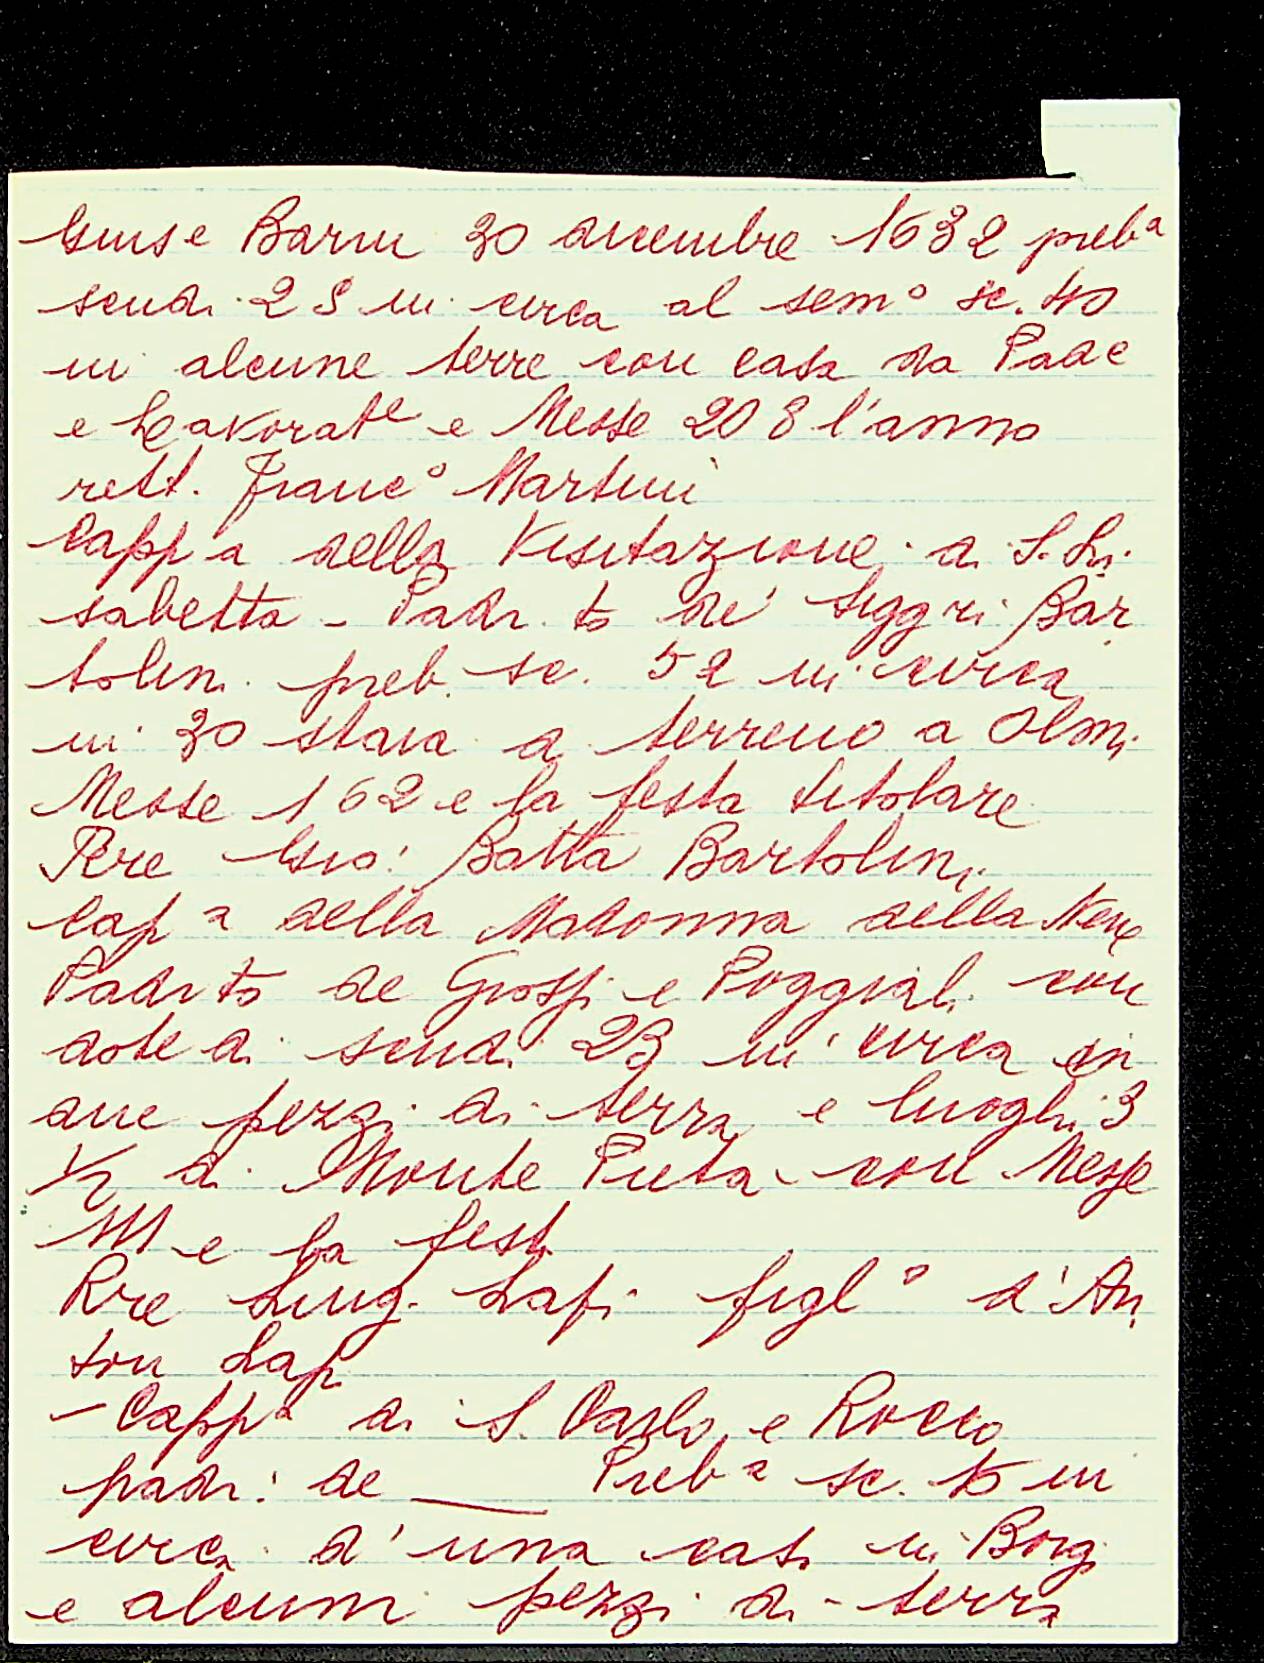 Giuse Barni 30 dicembre 1632 preb.a
scudi 28 in circa al sem° sc. 40
in alcune terre con casa da Pad.e
e Lavorat.e e Messe 208 l'anno
rett. Franc° Martini
Capp a della Visitazione di S. Li
sabetta - Padr. to de' Sigg ri Bar
tolini preb. sc. 52 in circa
in 30 staia di terreno a Olmi
Messe 162 e la festa titolare
Rre Gio: Batta Bartolini
Cap a della Madonna della Neve
Padr to de Grossi e Poggiali con
dote di scudi 23 in circa in
due pezzi di terra e luoghi 3
1/2 di Monte Pietà - con Messe
111 e la festa
Rre Luig. Lapi figl° d'An
ton Lapi
- Capp.a di S. Carlo e Rocco
padr: de ___ Preb.a sc. 15 in
circa d'una casa in Borg
e alcuni pezzi di terra